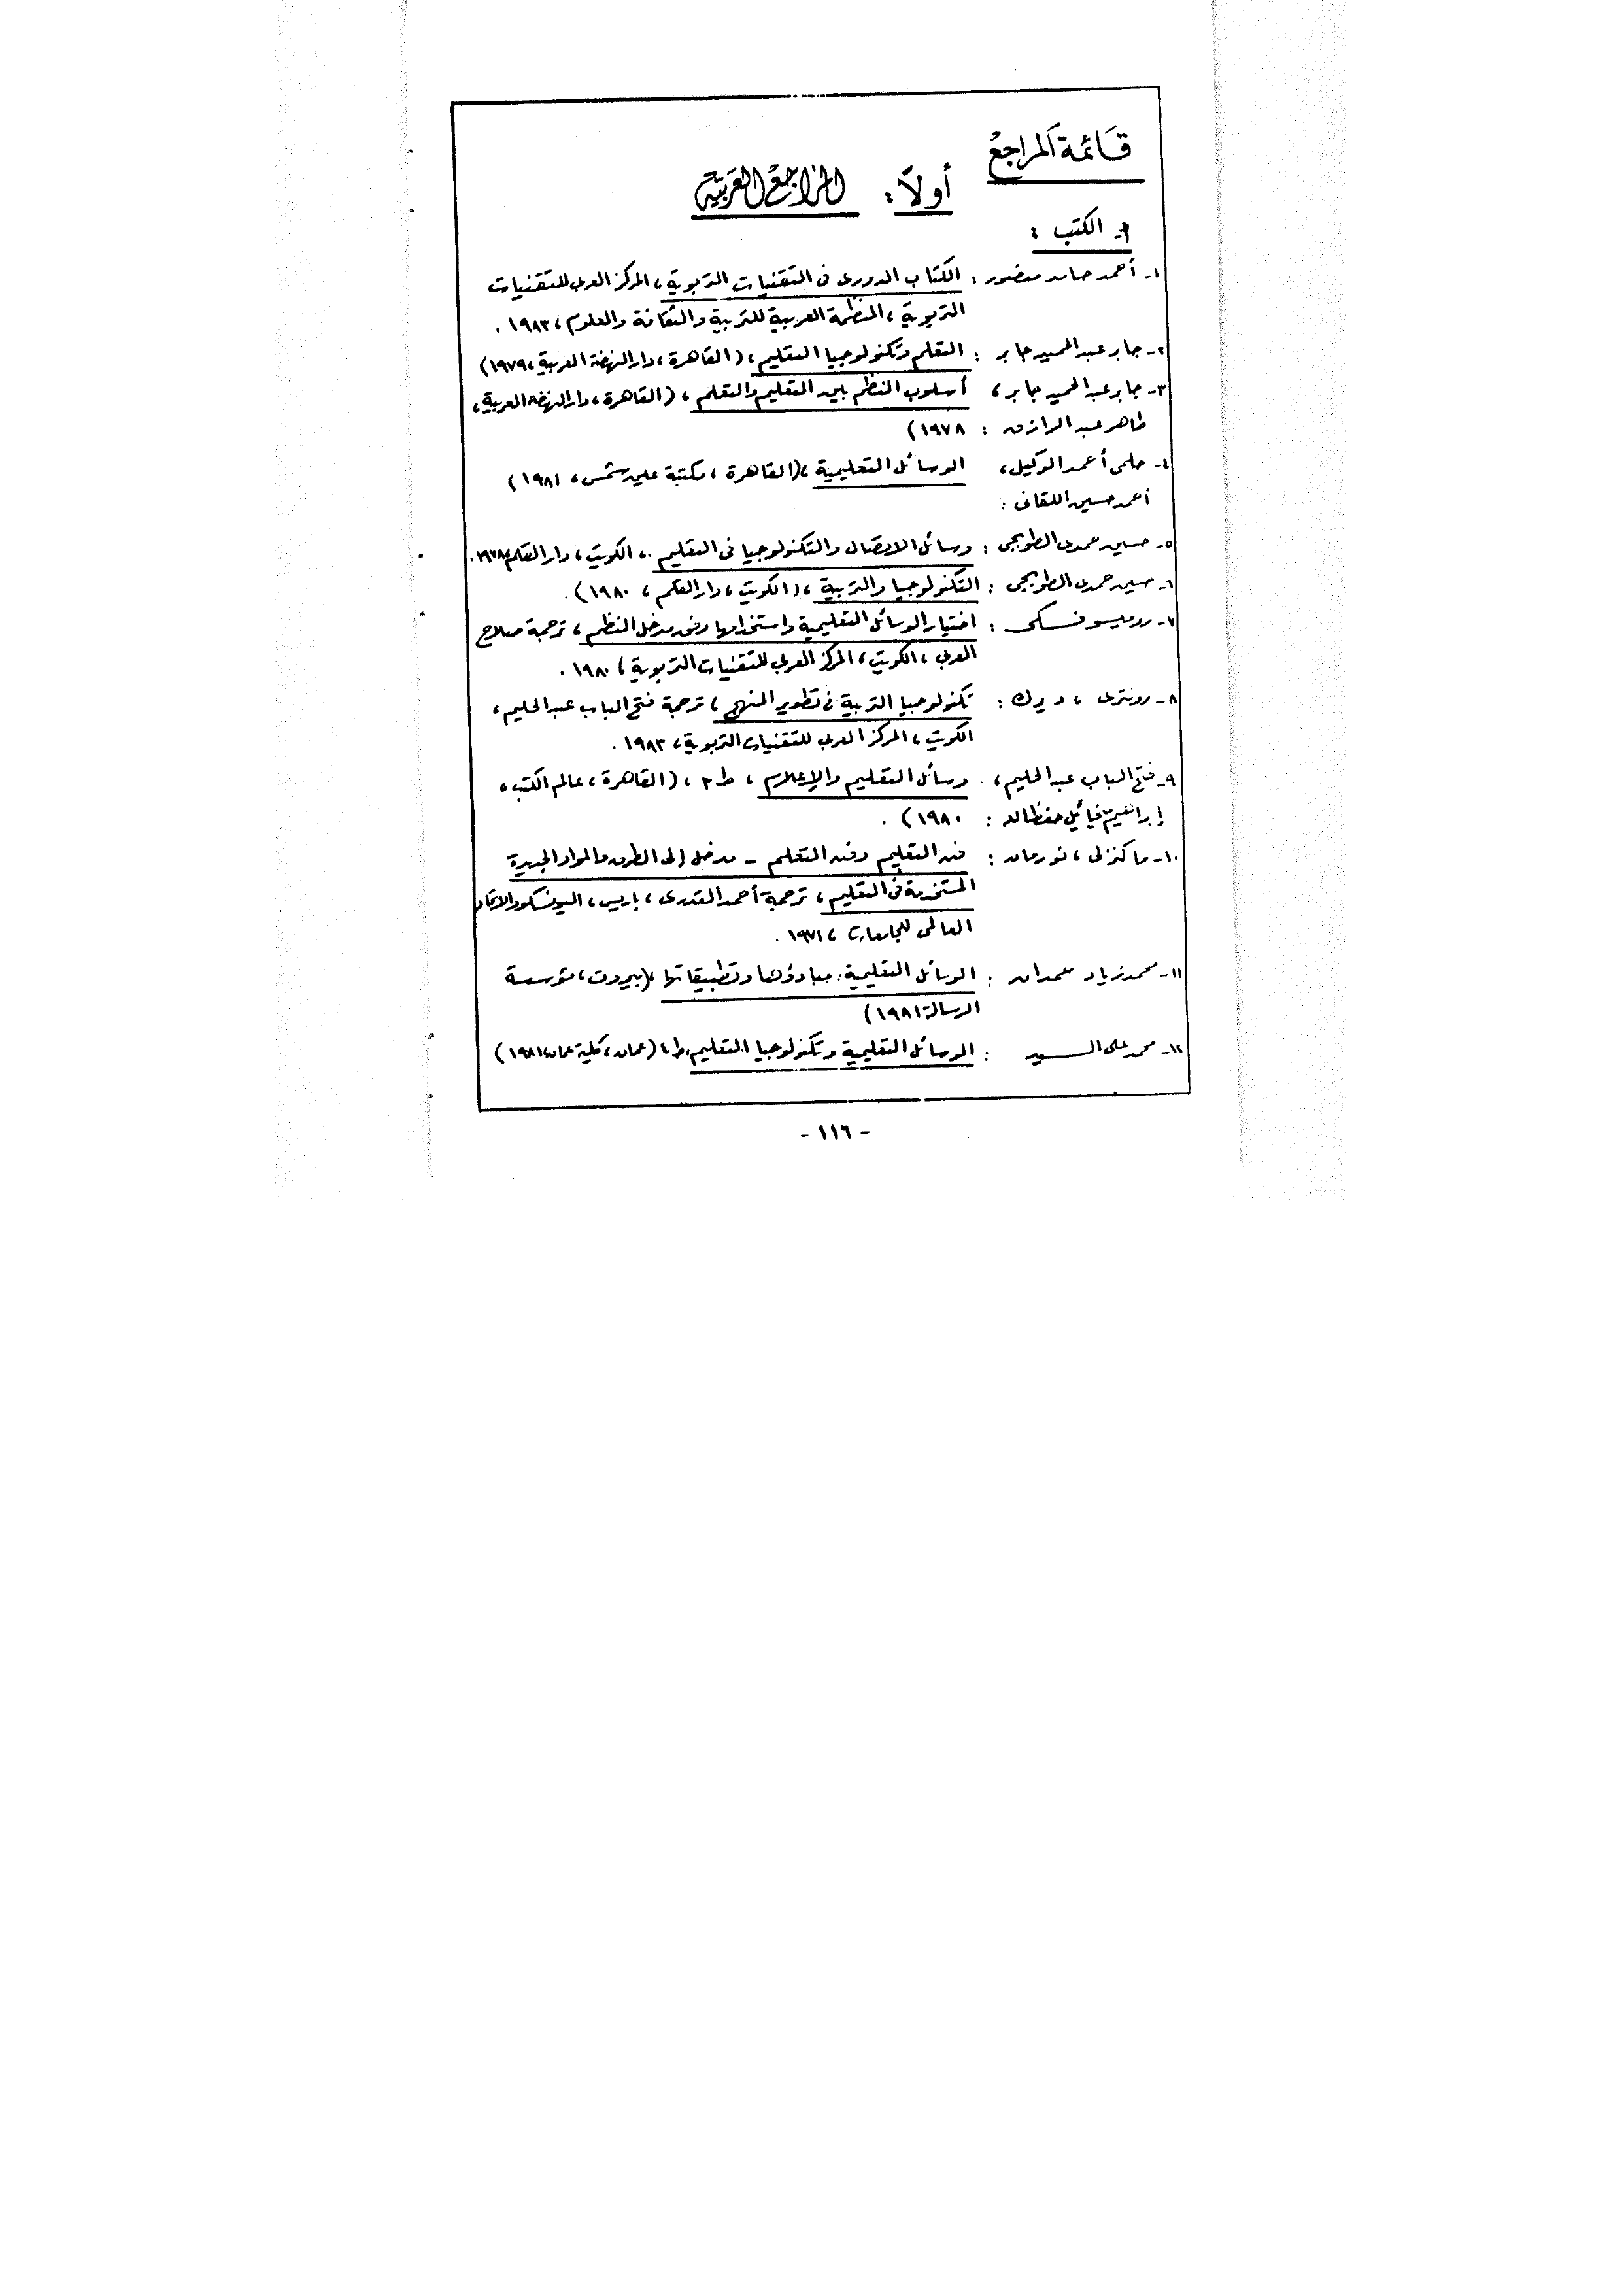 قائمة المراجع
أولاً : المراجع العربية
أ- الكتب :
١- أحمد حامد منصور : الكتاب الدورى فى التقنيات التربوية ، المركز العربى للتقنيات
التربوية ، المنظمة العربية للتربية والثقافة والعلوم ، ١٩٨٣ .
٢- جابر عبد الحميد جابر : التعلم وتكنولوجيا التعليم ، ( القاهرة ، دار النهضة العربية ، ١٩٧٩ )
٣- جابر عبد الحميد جابر ، أسلوب النظم بين التعليم والتعلم ، ( القاهرة ، دار النهضة العربية ،
طاهر عبد الرازق : ١٩٧٨ )
٤- حلمى أحمد الوكيل ، الوسائل التعليمية ، ( القاهرة ، مكتبة عين شمس ، ١٩٨١ )
أحمد حسين اللقانى :
٥- حسين حمدى الطوبجى : وسائل الاتصال والتكنولوجيا فى التعليم . ، الكويت ، دار القلم
٦- حسين حمدى الطوبجى : التكنولوجيا والتربية ، ( الكويت ، دار القلم ، ١٩٨٠ ) .
٧- روميسوفسكى : اختيار الوسائل التعليمية واستخدامها وفق مدخل النظم ، ترجمة صلاح
العربى ، الكويت ، المركز العربى للتقنيات التربوية ، ١٩٨٠ .
٨- رونترى ، ديرك : تكنولوجيا التربية فى تطوير المنهج ، ترجمة فتح الباب عبد الحليم ،
الكويت ، المركز العربى للتقنيات التربوية ، ١٩٨٣ .
٩- فتح الباب عبد الحليم ، وسائل التعليم والإعلام ، ط ٢ ، ( القاهرة ، عالم الكتب ،
إبراهيم ميخائيل حفظ الله : ١٩٨٠ ) .
١٠- ماكنزلى ، نورمان : فن التعليم وفن التعلم - مدخل إلى الطرق والمواد الجديدة
المستخدمة فى التعليم ، ترجمة أحمد القادرى ، باريس ، اليونسكو والاتحاد
العالمى للجامعات ، ١٩٧١ .
١١- محمد زياد حمدان : الوسائل التعليمية : مبادؤها وتطبيقاتها ، ( بيروت ، مؤسسة
الرسالة ١٩٨١ )
١٢- محمد على السيد : الوسائل التعليمية وتكنولوجيا التعليم ، ط ٤ ( عمان ، كلية عمان ، ١٩٨١ )
- ١١٦ -